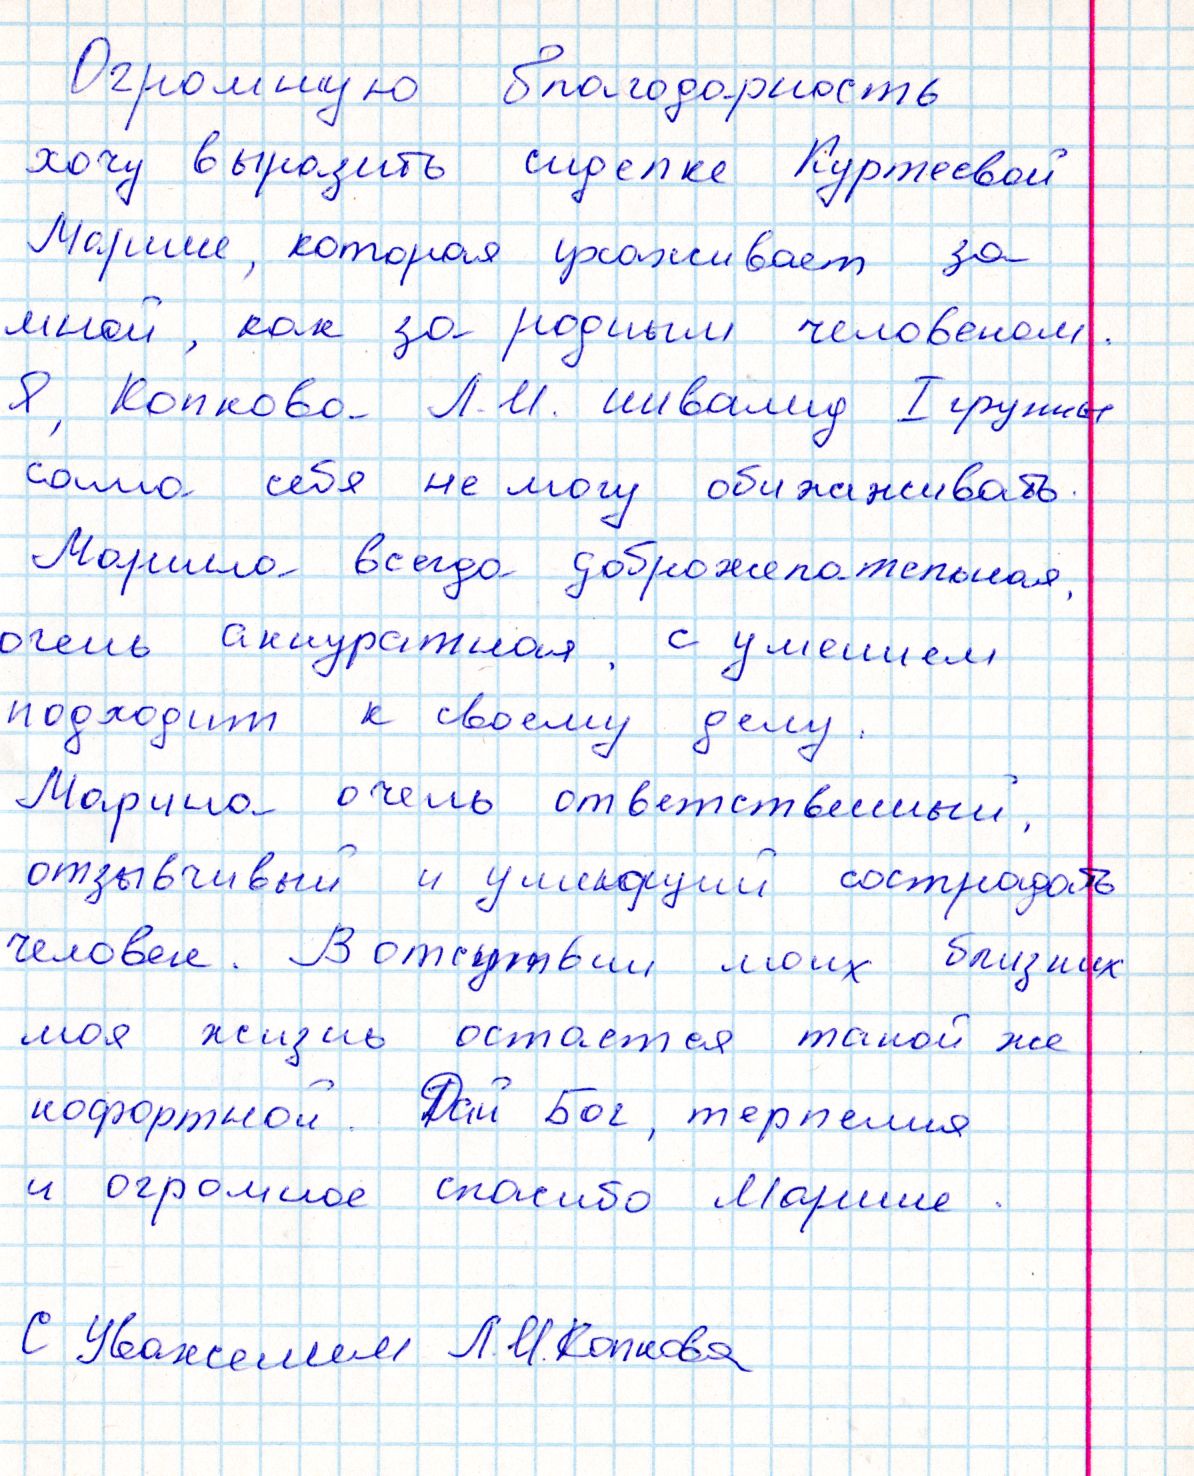 Огромную благодарность
хочу выразить сиделке Куртеевой
Марине, которая ухаживает за
мной, как за родным человеком.
Я, Колкова Л.И. инвалид I группы
сама себя не могу обихаживать.
Марина всегда доброжелательная,
очень аккуратная, с умением
подходит к своему делу.
Марина очень ответственный,
отзывчивый и умеющий сострадать
человек. В отсутствии моих близких
моя жизнь остается такой же
кофортной. Дай Бог, терпения
и огромное спасибо Марине.
С Уважением Л.И. Колкова